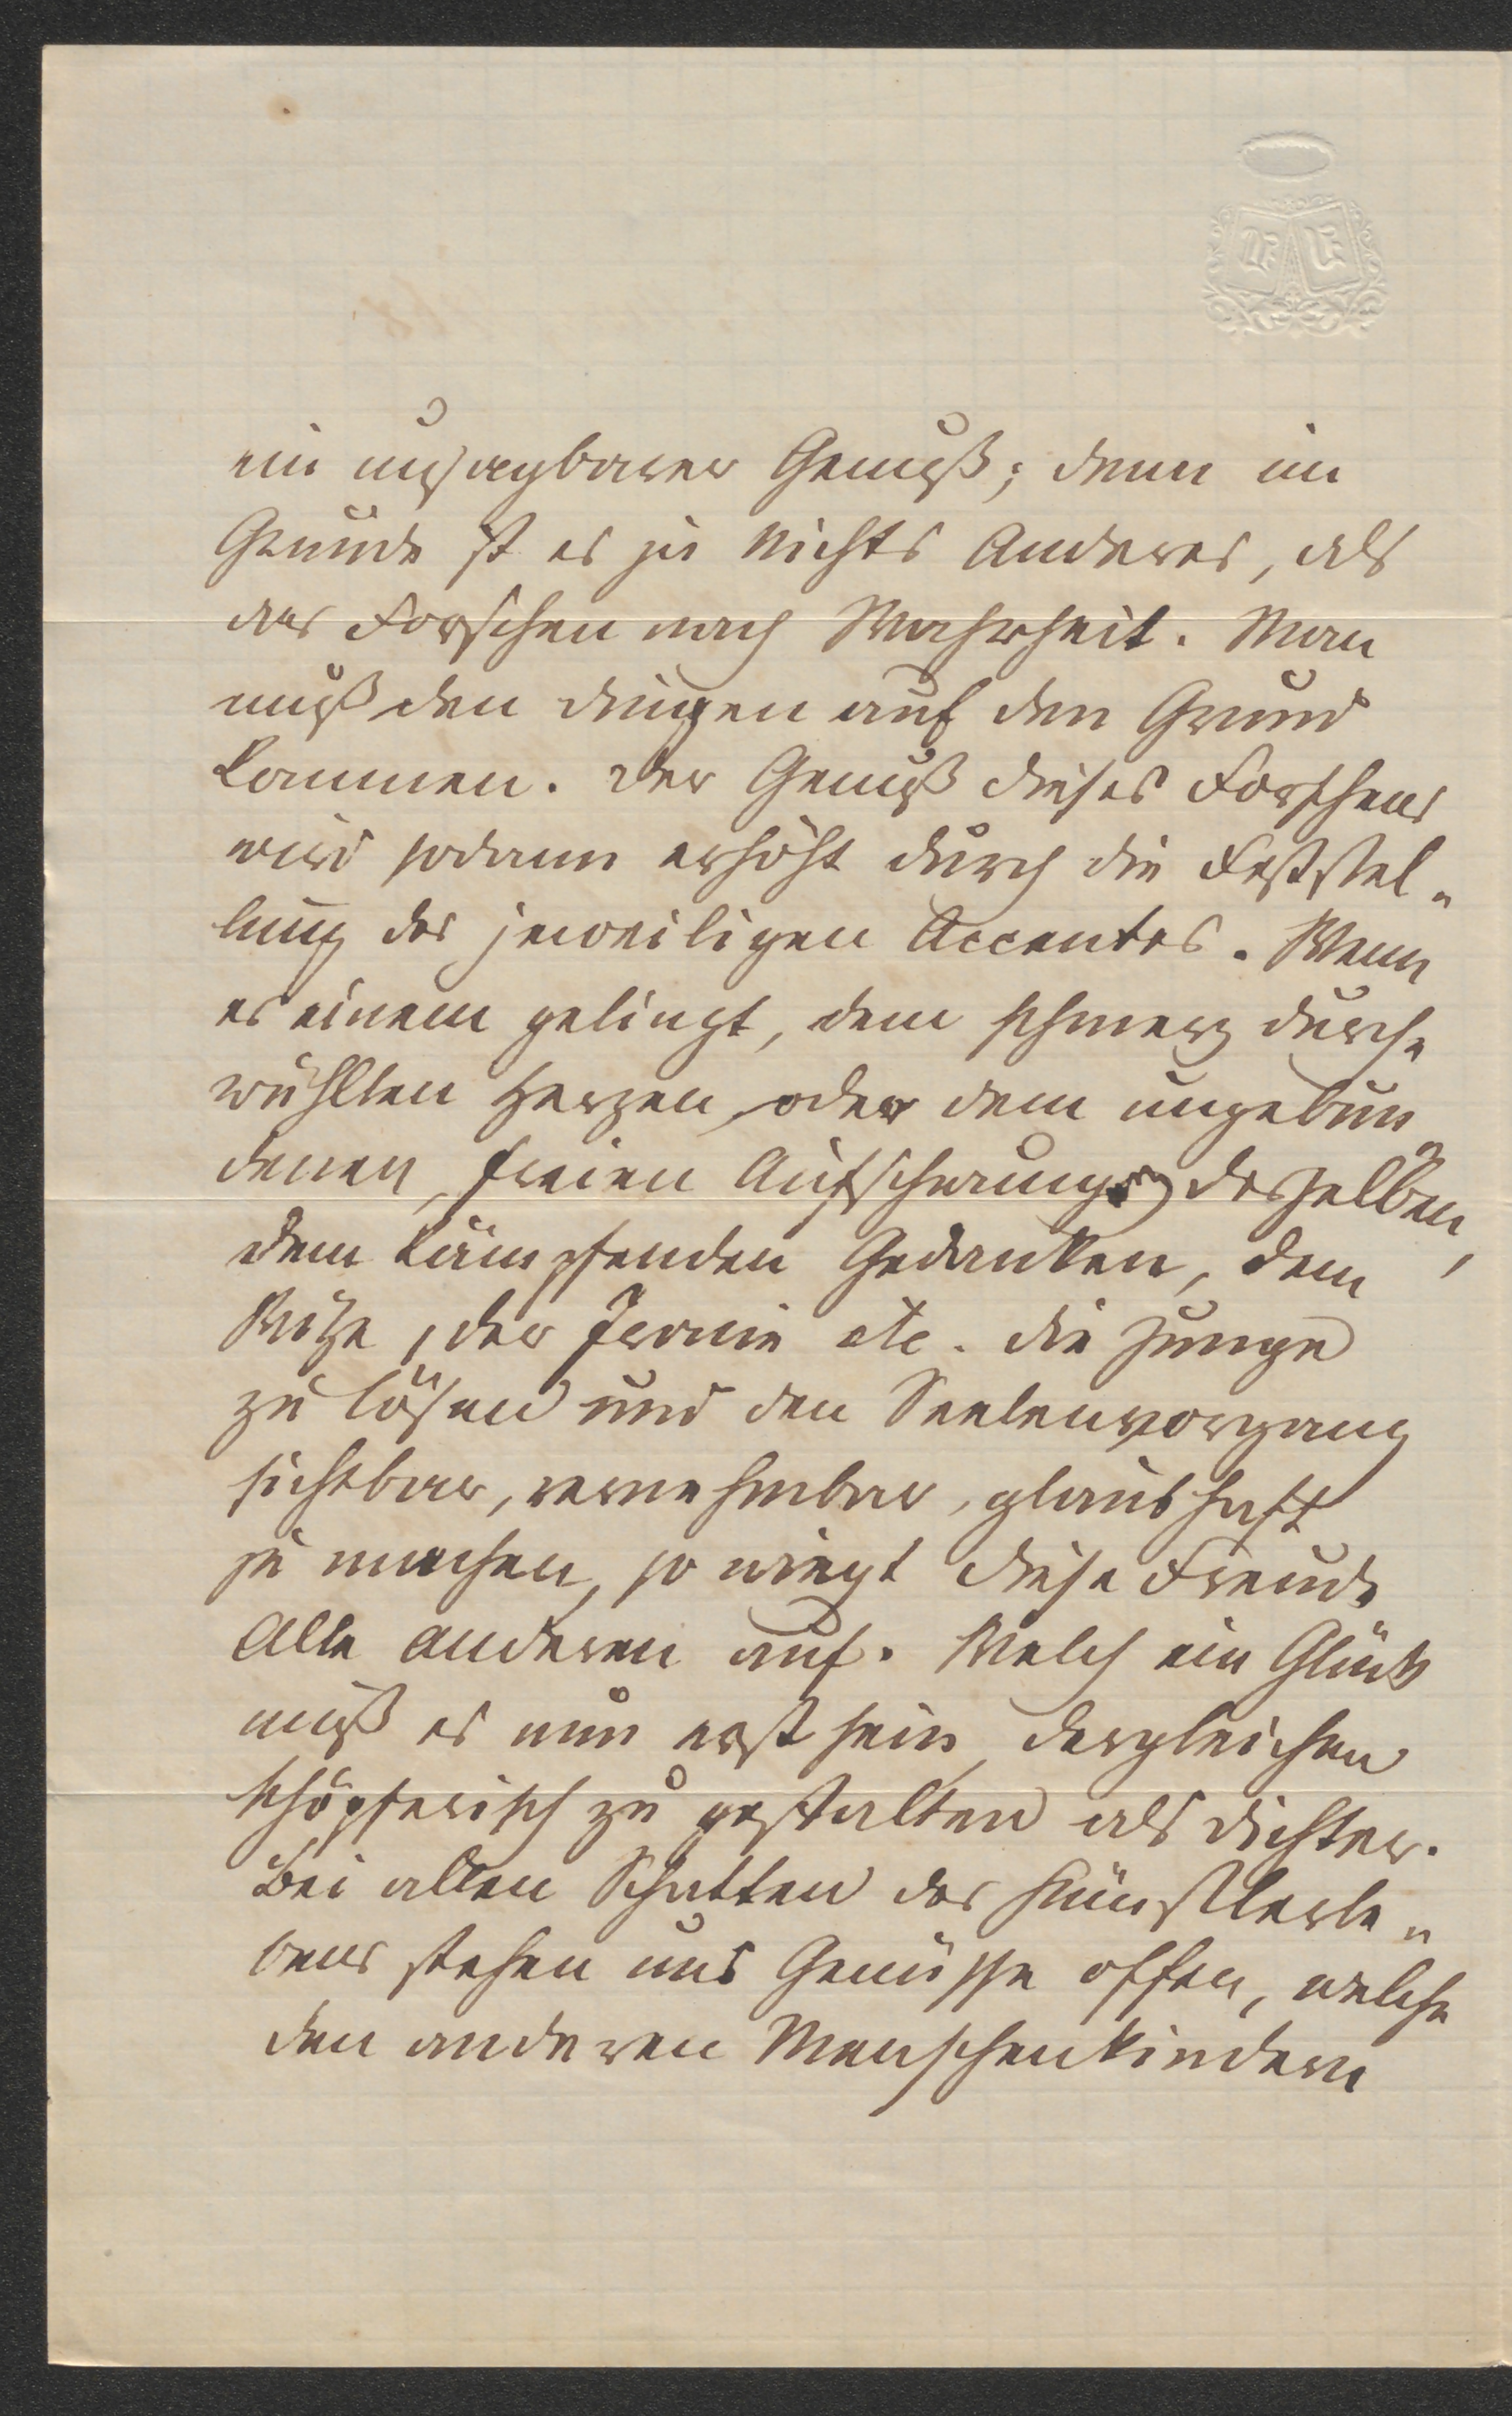 ein unsagbarer Genuß; denn im
Grunde ist es ja nichts Anderes, als
das Forschen nach Wahrheit. Man
muß den Dingen auf den Grund
kommen. Der Genuß dieses Forschens
wird sodann erhöht durch die Feststel„
lung des jeweiligen Accentes. Wenn
es einem gelingt, dem schmerz durch„
wühlten Herzen, oder dem ungebun„
denen, freien Aufschwung desselben,
dem kämpfenden Gedanken, dem
Witze, der Ironie etc. die Zunge
zu lösen und den Seelenvorgang
sichtbar, vernehmbar, glaubhaft
zu machen, so wiegt diese Freude
Alle anderen auf. Welch ein Glück
muß es nun erst sein, dergleichen
schöpferisch zu gestalten als Dichter.
Bei allen Schatten des Künstlerle„
bens stehen uns Genüsse offen, welche
den anderen Menschenkindern